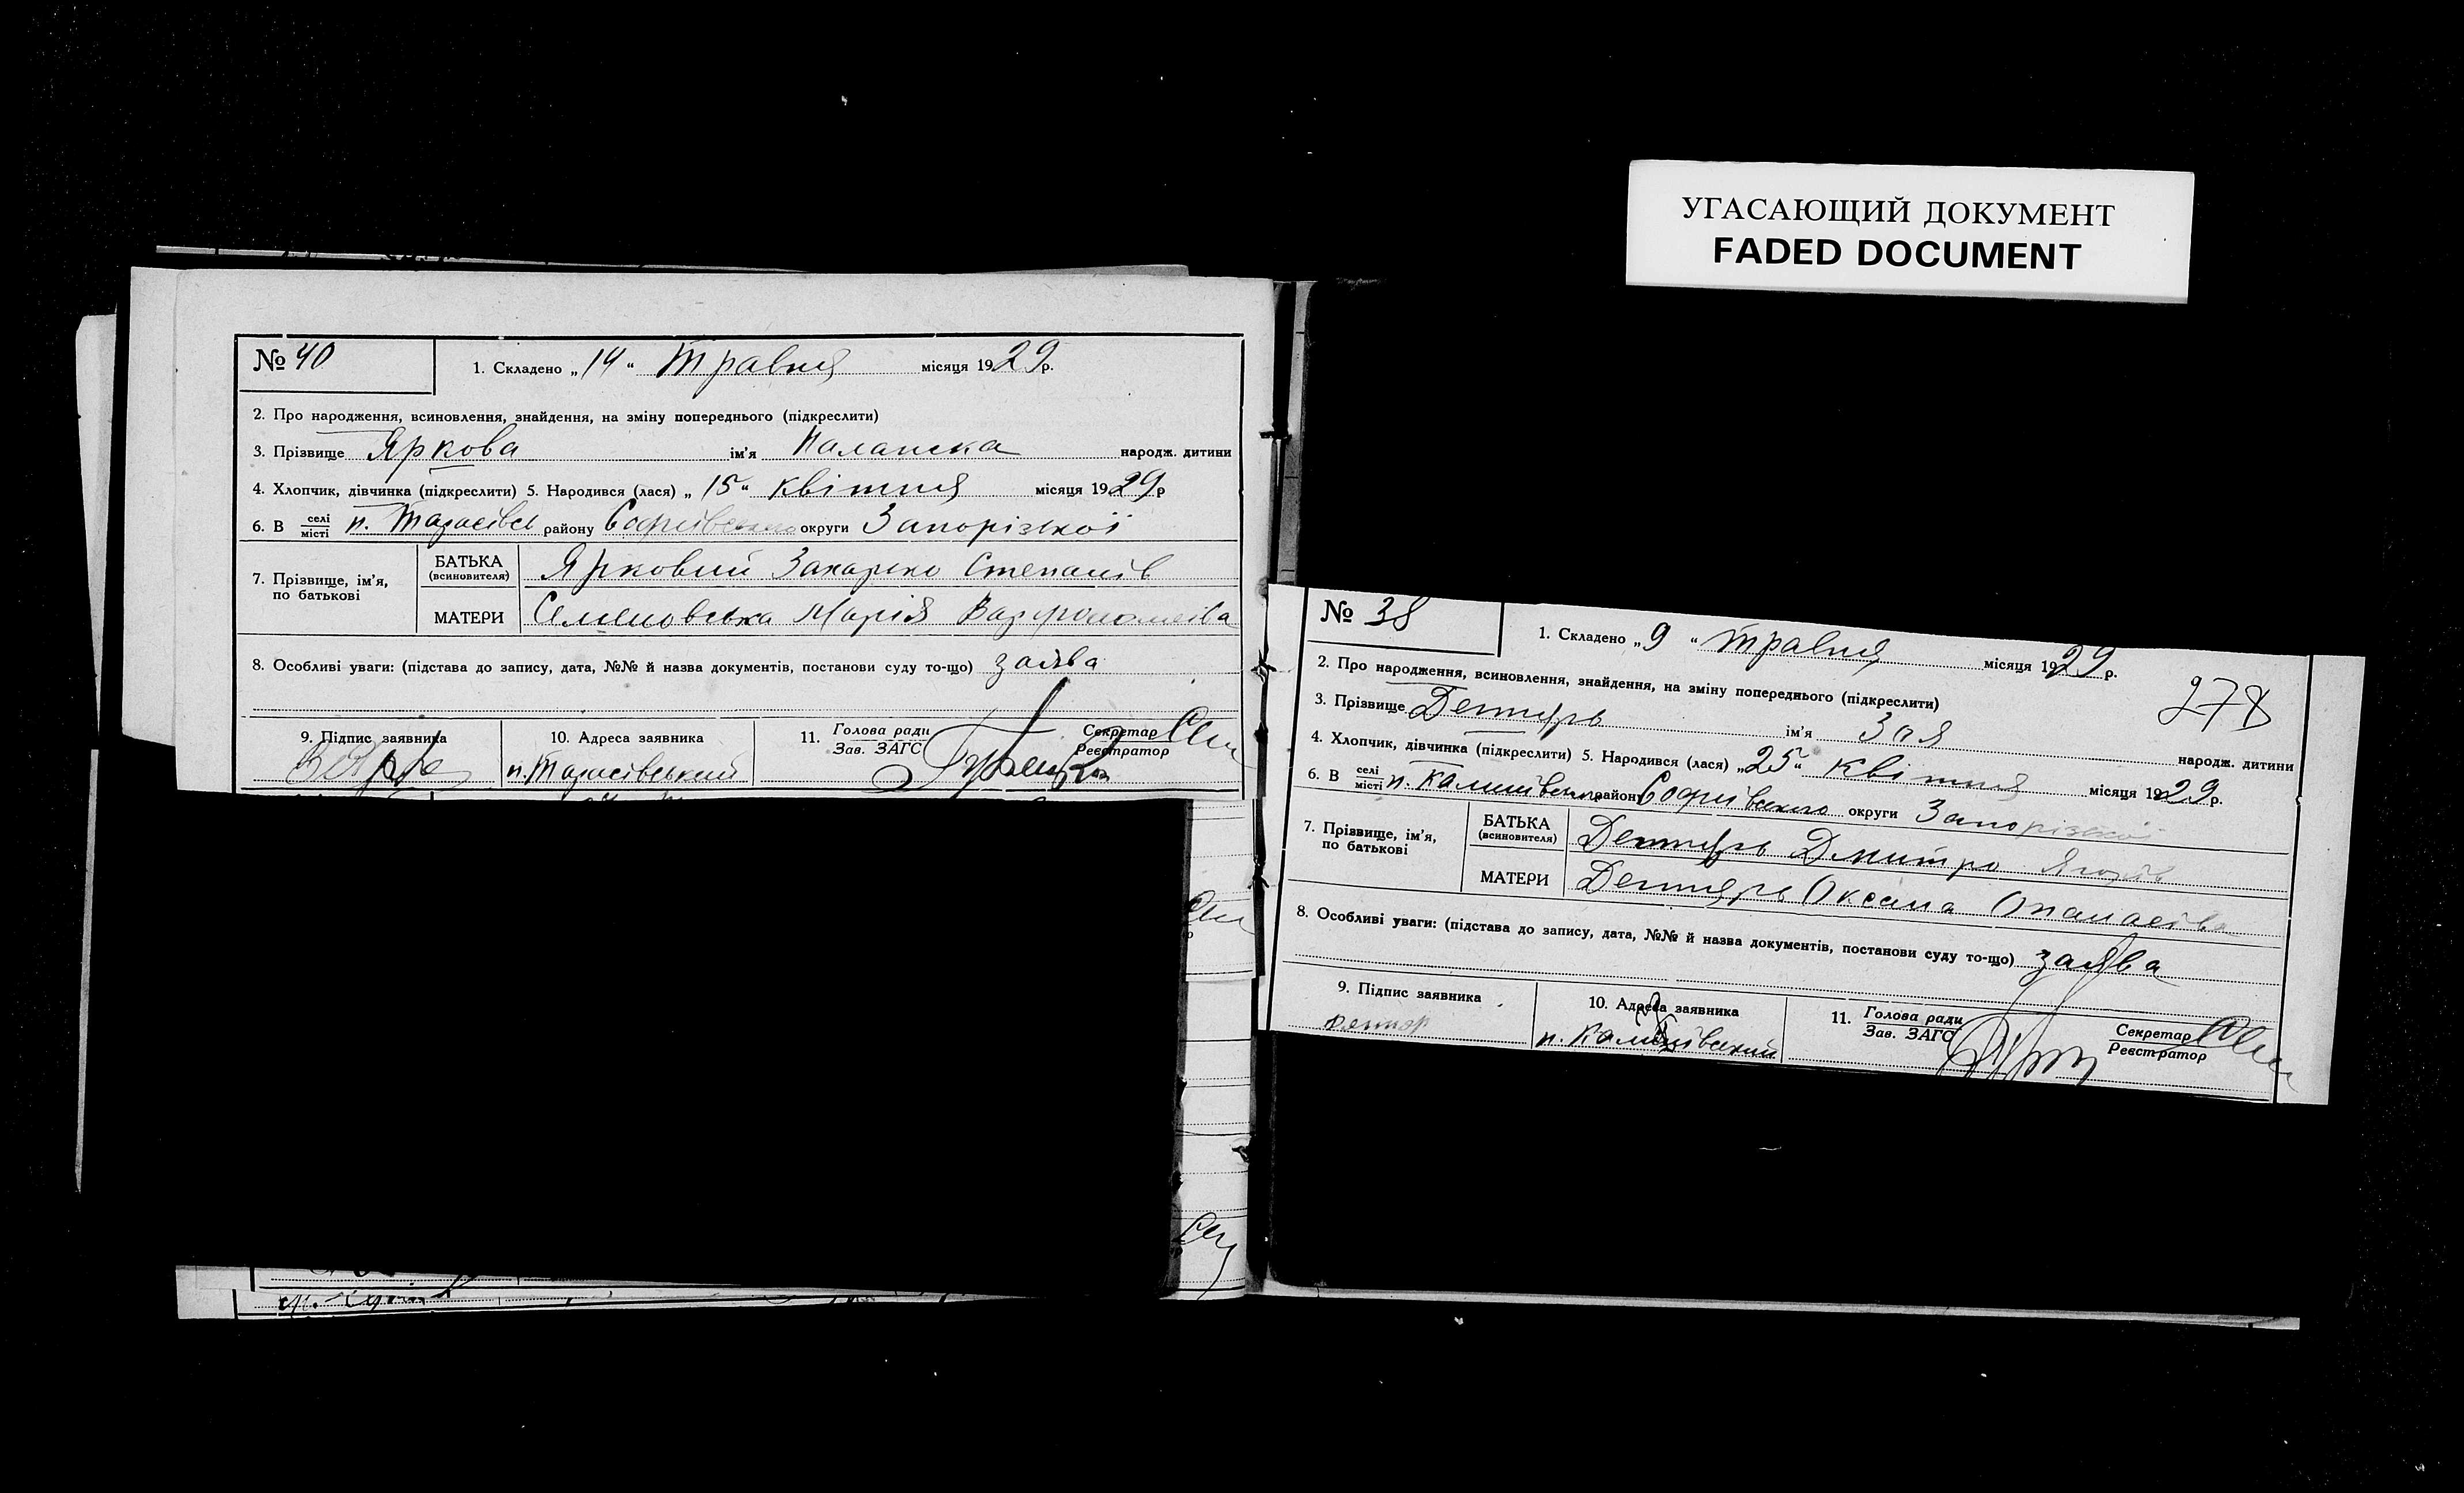 УГАСАЮЩИЙ ДОКУМЕНТ
FADED DOCUMENT
№ 40
1. Складено „14“ Травня місяця 1929 р.
2. Про народження, всиновлення, знайдення, на зміну попереднього (підкреслити)
3. Прізвище Яркова ім'я Палашка народж. дитини
4. Хлопчик, дівчинка (підкреслити) 5. Народився (лася) „15“ квітня місяця 1929 р
6. В селі місті п. району Софиївського округи Запорізької
7. Прізвище, ім'я, по батькові
БАТЬКА (всиновителя) Ярковий Захарко Степанів
МАТЕРИ Семеновська Марія
8. Особливі уваги: (підстава до запису, дата, №№ й назва документів, постанови суду то-що) заява
9. Підпис заявника
10. Адреса заявника
п.
11. Голова ради
Зав. ЗАГС
Секретар
Реєстратор
№ 38
1. Складено „9“ травня місяця 1929 р.
278
2. Про народження, всиновлення, знайдення, на зміну попереднього (підкреслити)
3. Прізвище Дегтярь ім'я Зоя народж. дитини
4. Хлопчик, дівчинка (підкреслити) 5. Народився (лася) „25“ квітня місяця 1929 р.
6. В селі місті п. району Софиївського округи Запорізької
7. Прізвище, ім'я, по батькові
БАТЬКА (всиновителя) Дегтярь Дмитро
МАТЕРИ Дегтярь Оксана Опанасівна
8. Особливі уваги: (підстава до запису, дата, №№ й назва документів, постанови суду то-що) заява
9. Підпис заявника
10. Адреса заявника
п.
11. Голова ради
Зав. ЗАГС
Секретар
Реєстратор